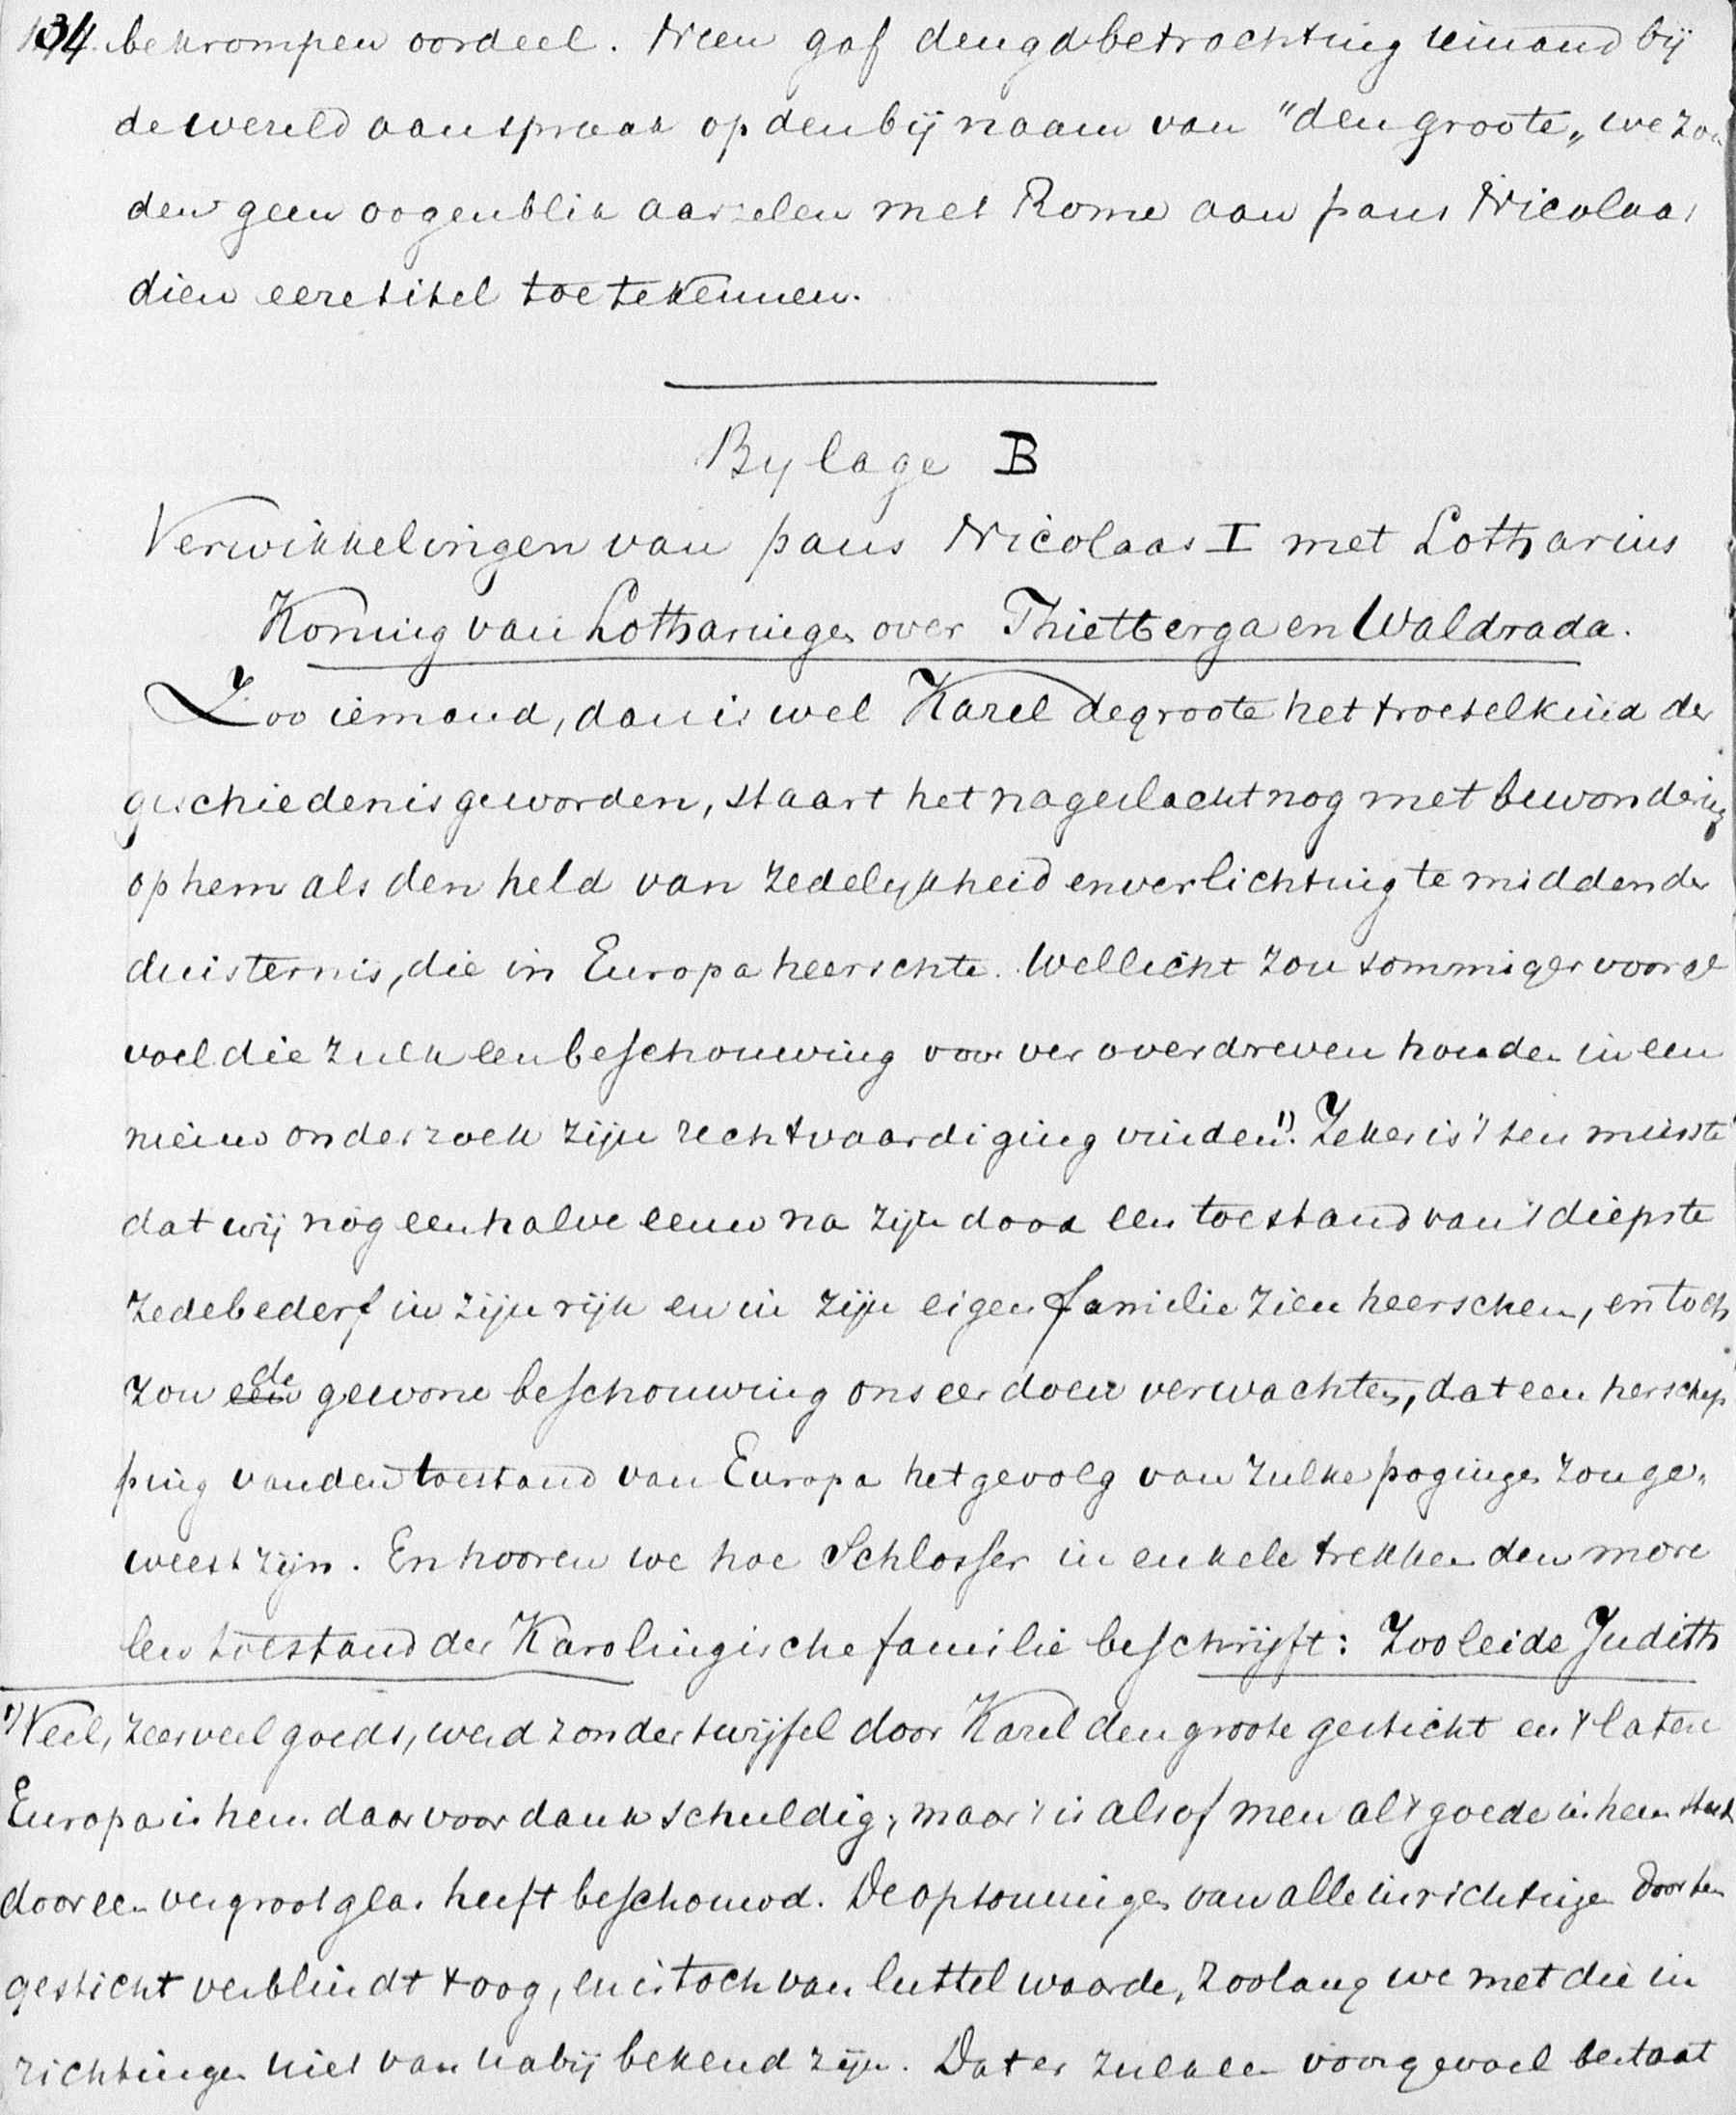 134. bekrompen oordeel. Neen gaf deugdsbetrachting iemand bij
de wereld aanspraak op den bijnaam van "den groote„ we zou
den geen oogenblik aarzelen met Rome aan paus Nicolaas
dien eeretitel toe te kennen.
Bylage B
Verwikkelingen van paus Nicolaas I met Lotharius
Koning van Lotharingen over Thietberga en Waldrada.
Zoo iemand, dan is wel Karel de groote het troetelkind der
geschiedenis geworden, staart het nageslacht nog met bewondering
op hem als den held van zedelykheid en verlichting te midden der
duisternis, die in Europa heerschte. Wellicht zou sommiger voorge
voel die zulk een beschouwing voor ver overdreven houden in een
nieuw onderzoek zijn rechtvaardiging vinden 1). Zeker is 't ten minste
dat wij nog een halve eeuw na zijn dood een toestand van 't diepste
zedebederf in zijn rijk en in zijn eigen familie zien heerschen, en toch
zou de gewone beschouwing ons eer doen verwachten, dat een herschep
ping van den toestand van Europa het gevolg van zulke pogingen zou ge„
weest zijn. En hooren we hoe Schlosser in enkele trekken den more
len toestand der Karolingische familie beschrijft: Zoo leide Judith
1) Veel, zeer veel goeds, werd zonder twijfel door Karel den groote gesticht en 't latere
Europa is hem daarvoor dank schuldig; maar 't is alsof men al 't goede in hem steeds
door een vergrootglas heeft beschouwd. De opsommingen van alle inrichtingen door hem
gesticht verblindt 't oog, en is toch van luttel waarde, zoolang we met die in
richtingen niet van nabij bekend zijn. Dat er zulk een voorgevoel bestaat